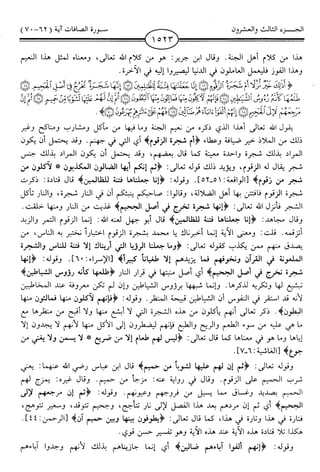 الجـــزء الثالث والعشرون
١٥٢٣
سورة الصافات آية (٦٢-٧٠)
هذا من كلام أهل الجنة. وقال ابن جرير: هو من كلام الله تعالى، ومعناه لمثل هذا النعيم
وهذا الفوز فليعمل العاملون في الدنيا ليصيروا إليه في الآخرة.
يقول الله تعالى أهذا الذي ذكره من نعيم الجنة وما فيها من مآكل ومشارب ومناكح وغير
ذلك من الملاذ خير ضيافة وعطاء ﴿أم شجرة الزقوم﴾ أي التي في جهنم. وقد يحتمل أن يكون
المراد بذلك شجرة واحدة معينة كما قال بعضهم، وقد يحتمل أن يكون المراد بذلك جنس
شجر يقال له الزقوم، ويؤيد ذلك قوله تعالى: ﴿ثم إنكم أيها الضالون المكذبون * لآكلون من
شجر من زقوم﴾ [الواقعة: ٥١-٥٢]. وقوله: ﴿إنا جعلناها فتنة للظالمين﴾ قال قتادة: ذكرت
شجرة الزقوم فافتتن بها أهل الضلالة، وقالوا: صاحبكم ينبئكم أن في النار شجرة، والنار تأكل
الشجر فأنزل الله تعالى: ﴿إنها شجرة تخرج في أصل الجحيم﴾ غذيت من النار ومنها خلقت.
وقال مجاهد: ﴿إنا جعلناها فتنة للظالمين﴾ قال أبو جهل لعنه الله: إنما الزقوم التمر والزبد
أتزقمه. قلت: ومعنى الآية إنما أخبرناك يا محمد بشجرة الزقوم اختباراً نختبر به الناس، من
يصدق منهم ممن يكذب كقوله تعالى: ﴿وما جعلنا الرؤيا التي أريناك إلا فتنة للناس والشجرة
الملعونة في القرآن ونخوفهم فما يزيدهم إلا طغياناً كبيراً﴾ [الإسراء: ٦٠]. وقوله: ﴿إنها
شجرة تخرج في أصل الجحيم﴾ أي أصل منبتها في قرار النار ﴿طلعها كأنه رؤوس الشياطين﴾
تبشيع لها وتكريه لذكرها. وإنما شبهها برؤوس الشياطين وإن لم تكن معروفة عند المخاطبين
لأنه قد استقر في النفوس أن الشياطين قبيحة المنظر. وقوله: ﴿فإنهم لآكلون منها فمالئون منها
البطون﴾. ذكر تعالى أنهم يأكلون من هذه الشجرة التي لا أبشع منها ولا أقبح من منظرها مع
ما هي عليه من سوء الطعم والريح والطبع فإنهم ليضطرون إلى الأكل منها لأنهم لا يجدون إلا
إياها وما هو في معناها كما قال تعالى: ﴿ليس لهم طعام إلا من ضريع * لا يسمن ولا يغني من
جوع﴾ [الغاشية: ٦-٧].
وقوله تعالى: ﴿ثم إن لهم عليها لشوباً من حميم﴾ قال ابن عباس رضي الله عنهما: يعني
شرب الحميم على الزقوم. وقال في رواية عنه: مزجاً من حميم. وقال غيره: يمزج لهم
الحميم بصديد وغساق مما يسيل من فروجهم وعيونهم. وقوله: ﴿ثم إن مرجعهم لإلى
الجحيم﴾ أي ثم إن مردهم بعد هذا الفصل لإلى نار تتأجج، وجحيم تتوقد، وسعير تتوهج،
فتارة في هذا وتارة في هذا، كما قال تعالى: ﴿يطوفون بينها وبين حميم آن﴾ [الرحمن: ٤٤].
هكذا تلا قتادة هذه الآية عند هذه الآية وهو تفسير حسن قوي.
وقوله: ﴿إنهم ألفوا آباءهم ضالين﴾ أي إنما جازيناهم بذلك لأنهم وجدوا آباءهم